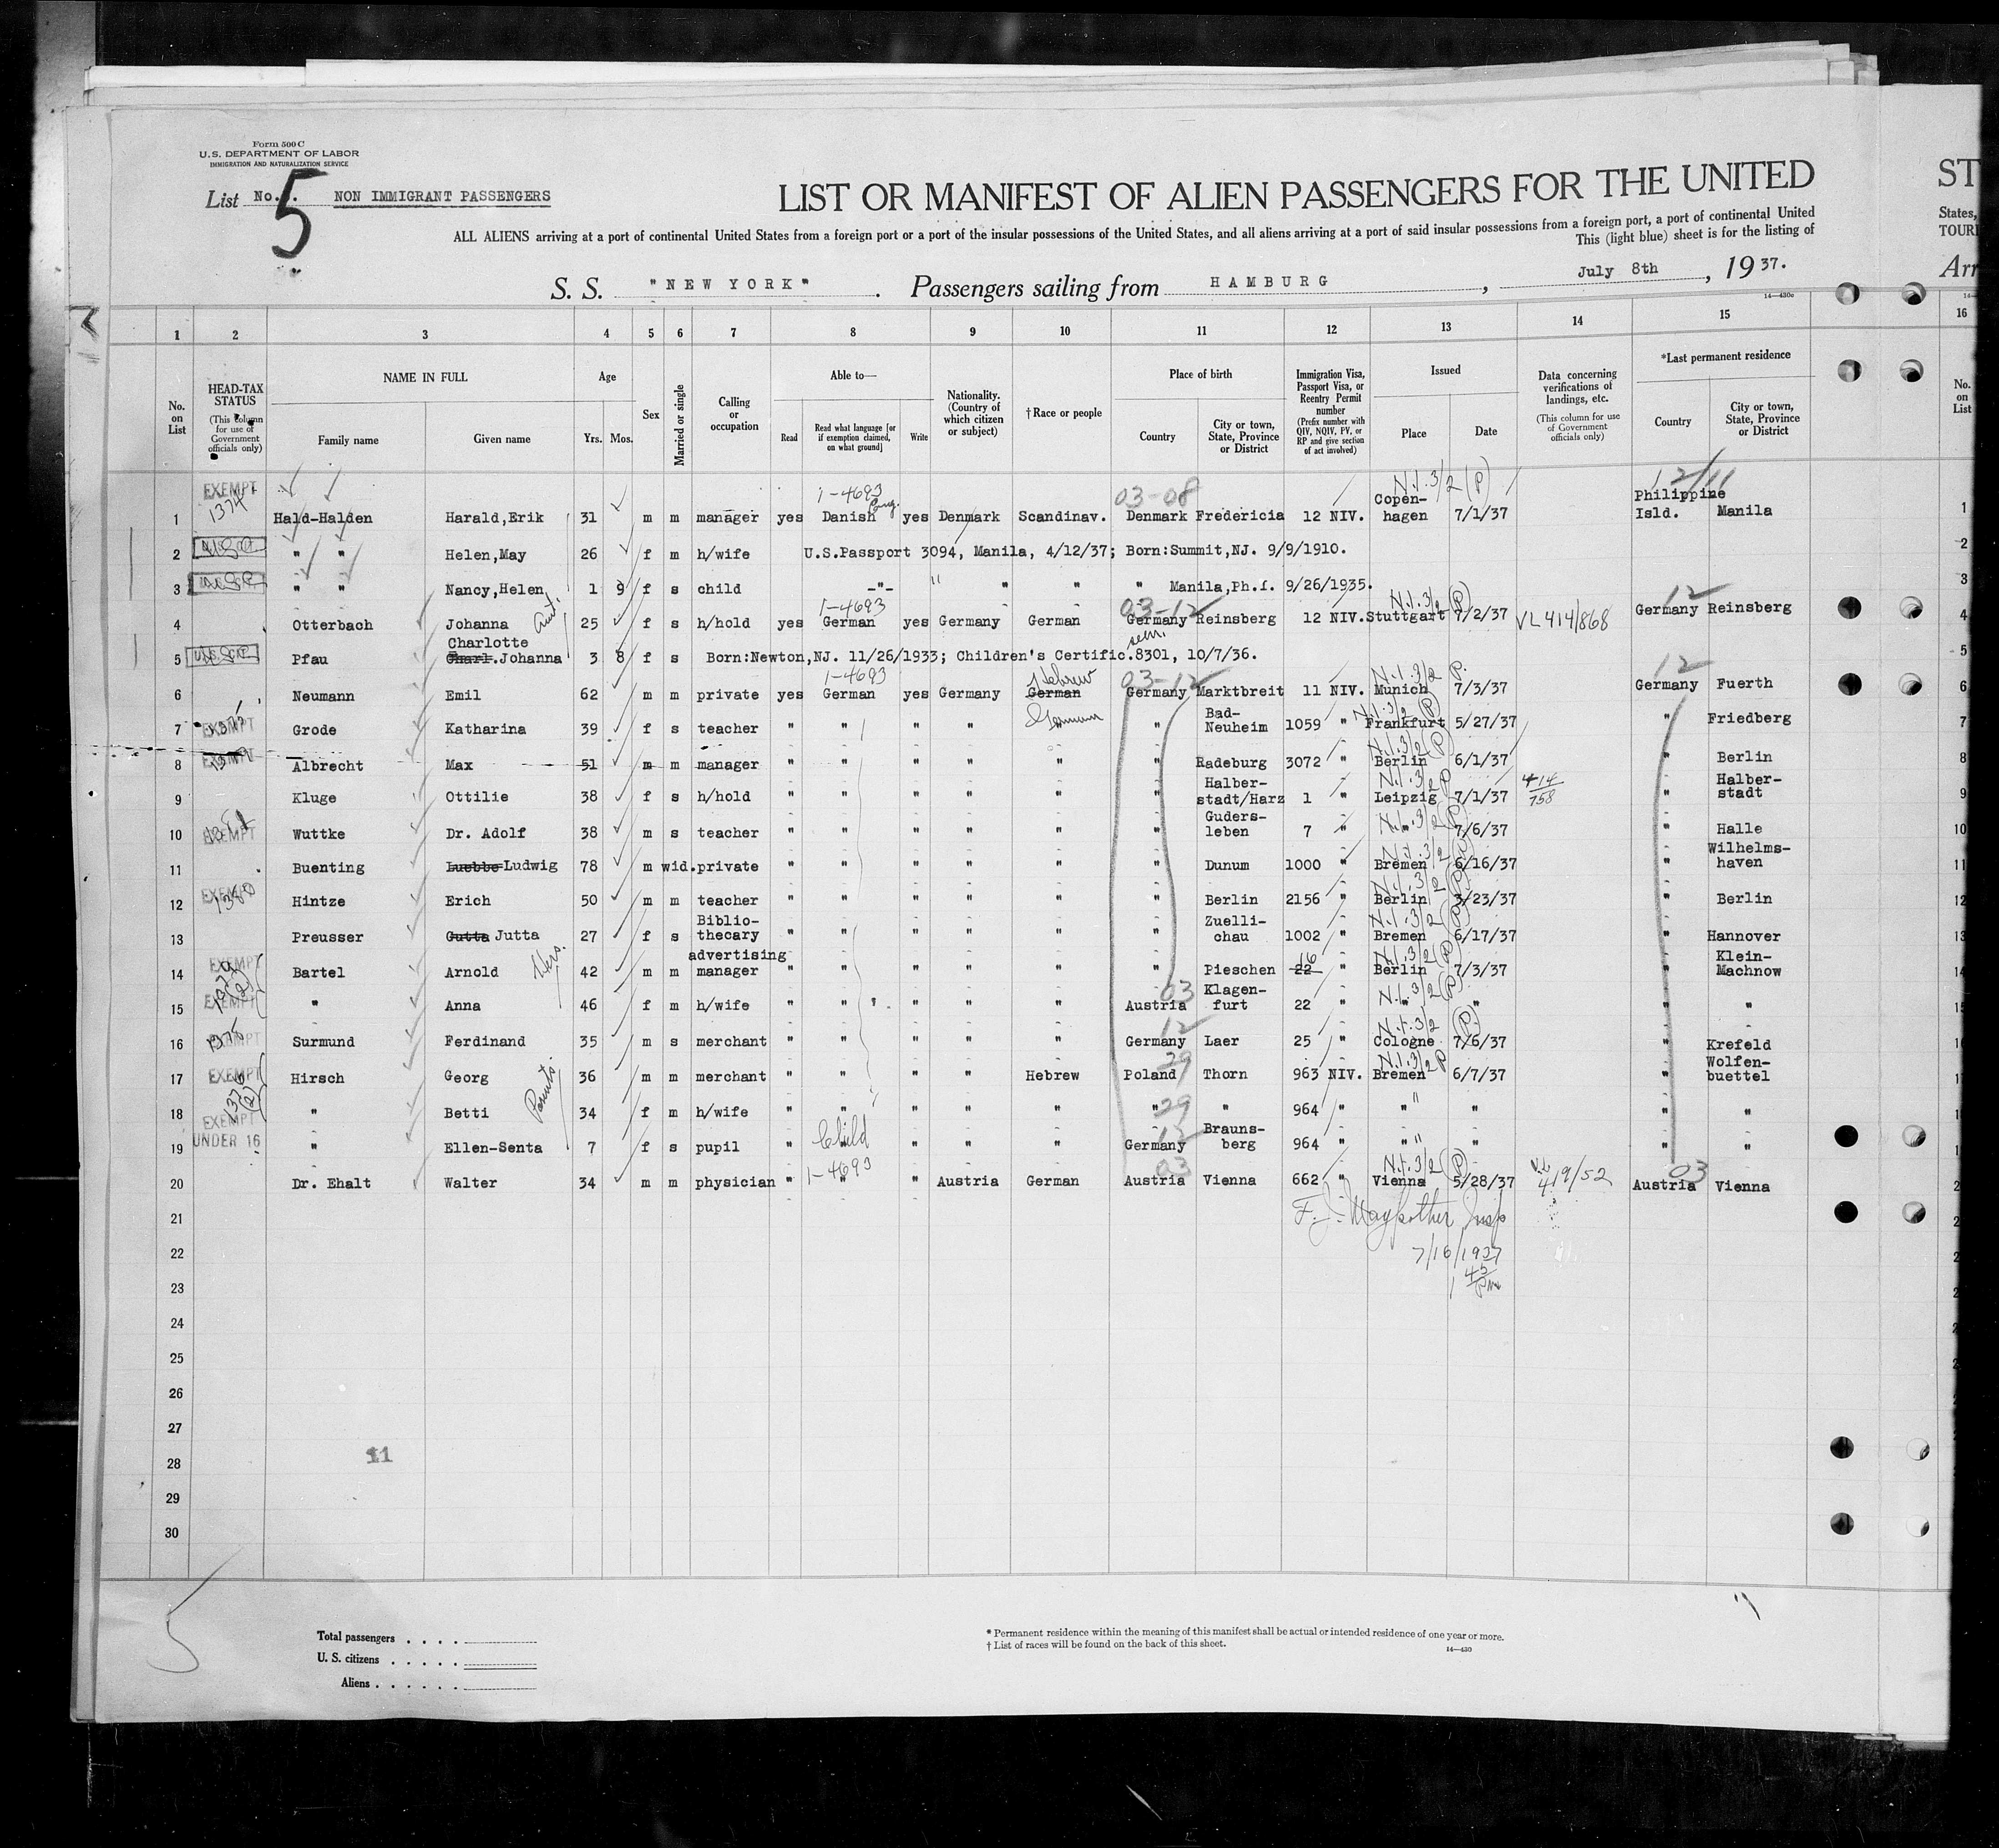 Form 500 C
U.S. DEPARTMENT OF LABOR
IMMIGRATION AND NATURALIZATION SERVICE
List No. 5. NON IMMIGRANT PASSENGERS
LIST OR MANIFEST OF ALIEN PASSENGERS FOR THE UNITED
ST
ALL ALIENS arriving at a port of continental United States from a foreign port or a port of the insular possessions of the United States, and all aliens arriving at a port of said insular possessions from a foreign port, a port of continental United
States,
This (light blue) sheet is for the listing of
TOURI
S. S. "NEW YORK" . Passengers sailing from HAMBURG, July 8th, 1937.
Arr
14—430c
1 2 3 4 5 6 7 8 9 10 11 12 13 14 15 16
No. on List
HEAD-TAX STATUS (This column for use of Government officials only)
NAME IN FULL
Family name Given name
Age
Yrs. Mos.
Sex
Married or single
Calling or occupation
Able to—
Read Read what language [or if exemption claimed, on what ground] Write
Nationality. (Country of which citizen or subject)
† Race or people
Place of birth
Country City or town, State, Province or District
Immigration Visa, Passport Visa, or Reentry Permit number (Prefix number with QIV, NQIV, PV, or RP and give section of act involved)
Issued
Place Date
Data concerning verifications of landings, etc. (This column for use of Government officials only)
*Last permanent residence
Country City or town, State, Province or District
No. on List
EXEMPT 1374 1-4693 Eng. 03-08 N.I. 3/2 (P) 12/11
1 Hald-Halden Harald,Erik 31 m m manager yes Danish yes Denmark Scandinav. Denmark Fredericia 12 NIV. Copen-hagen 7/1/37 Philippine Isld. Manila 1
2 " " Helen,May 26 f m h/wife U.S.Passport 3094, Manila, 4/12/37; Born:Summit,NJ. 9/9/1910. 2
3 " " Nancy,Helen 1 9 f s child -"- " " " " Manila,Ph.I. 9/26/1935. 3
1-4693 03-12 N.I. 3/2 (P) 12
4 Otterbach Johanna Aunt. 25 f s h/hold yes German yes Germany German Germany Reinsberg 12 NIV. Stuttgart 7/2/37 VL 414/868 Germany Reinsberg 4
5 Pfau Charlotte Charl. Johanna 3 8 f s Born:Newton,NJ. 11/26/1933; Children's Certific. 8301, 10/7/36. 5
1-4693 Hebrew 03-12 N.I. 3/2 P. 12
6 Neumann Emil 62 m m private yes German yes Germany German Germany Marktbreit 11 NIV. Munich 7/3/37 Germany Fuerth 6
EXEMPT German N.I. 3/2 P
7 Grode Katharina 39 f s teacher " " " " " " Bad-Neuheim 1059 " Frankfurt 5/27/37 " Friedberg 7
EXEMPT N.I. 3/2 (P)
8 Albrecht Max 51 m m manager " " " " " " Radeburg 3072 " Berlin 6/1/37 " Berlin 8
N.I. 3/2 P
9 Kluge Ottilie 38 f s h/hold " " " " " " Halber-stadt/Harz 1 " Leipzig 7/1/37 414/758 " Halber-stadt 9
EXEMPT N.I. 3/2 (P)
10 Wuttke Dr. Adolf 38 m s teacher " " " " " " Guders-leben 7 " " 7/6/37 " Halle 10
N.I. 3/2 (P)
11 Buenting Luebbe Ludwig 78 m wid. private " " " " " " Dunum 1000 " Bremen 6/16/37 " Wilhelms-haven 11
EXEMPT 1380 N.I. 3/2 (P)
12 Hintze Erich 50 m m teacher " " " " " " Berlin 2156 " Berlin 3/23/37 " Berlin 12
N.I. 3/2 (P)
13 Preusser Gutta Jutta 27 f s Biblio-thecary " " " " " " Zuelli-chau 1002 " Bremen 6/17/37 " Hannover 13
EXEMPT (2) 16 N.I. 3/2 (P)
14 Bartel Arnold 42 m m advertising manager " " " " " " Pieschen 22 " Berlin 7/3/37 " Klein-Machnow 14
EXEMPT 03 N.I. 3/2 (P)
15 " Anna 46 f m h/wife " " " " " Austria Klagen-furt 22 " " " " " 15
EXEMPT 1375 12 N.I. 3/2 (P.)
16 Surmund Ferdinand 35 m s merchant " " " " " Germany Laer 25 " Cologne 7/6/37 " Krefeld
EXEMPT 1376 (2) 29 N.I. 3/2 P
17 Hirsch Georg 36 m m merchant " " " " Hebrew Poland Thorn 963 NIV. Bremen 6/7/37 " Wolfen-buettel
EXEMPT Parents. 29
18 " Betti 34 f m h/wife " " " " " " " 964 " " " " "
UNDER 16 Child 12
19 " Ellen-Senta 7 f s pupil " " " " " Germany Brauns-berg 964 " " " " "
1-4693 03 N.I. 3/2 (P) 03
20 Dr. Ehalt Walter 34 m m physician " " " Austria German Austria Vienna 662 " Vienna 5/28/37 VL 419/52 Austria Vienna
21 F. J. Maypother Insp
22 7/16/1937
23 1 45 PM
24
25
26
27
28 11
29
30
5
Total passengers . . . .
U. S. citizens . . . . .
Aliens . . . . . .
* Permanent residence within the meaning of this manifest shall be actual or intended residence of one year or more.
† List of races will be found on the back of this sheet.
14—430